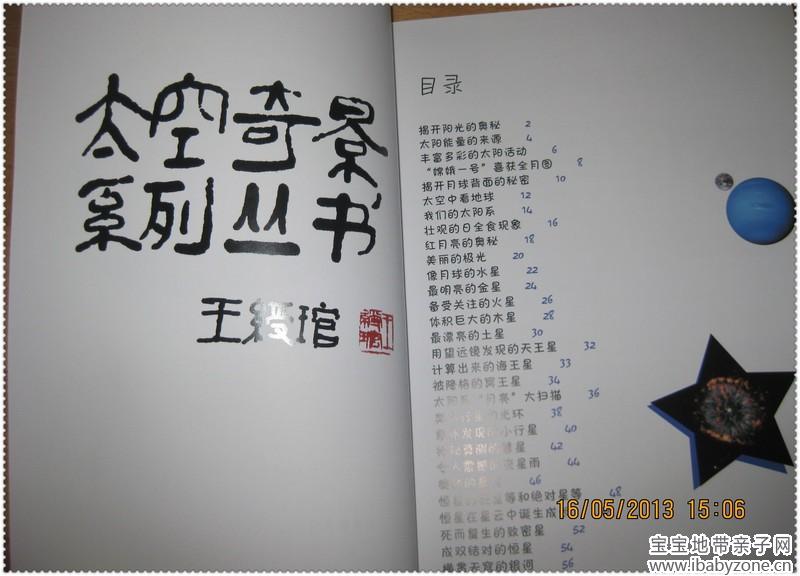 太空奇景
系列丛书
王绶琯
目录
揭开阳光的奥秘 2
太阳能量的来源 4
丰富多彩的太阳活动 6
“嫦娥一号”喜获全月图 8
揭开月球背面的秘密 10
太空中看地球 12
我们的太阳系 14
壮观的日全食现象 16
红月亮的奥秘 18
美丽的极光 20
像月球的水星 22
最明亮的金星 24
备受关注的火星 26
体积巨大的木星 28
最漂亮的土星 30
用望远镜发现的天王星 32
计算出来的海王星 33
被降格的冥王星 34
太阳系“月亮”大扫描 36
光环 38
发现的小行星 40
星 42
流星雨 44
46
恒星的 星等和绝对星等 48
恒星在星云中诞生成
死而复生的致密星 52
成双结对的恒星 54
横贯天穹的银河 56
16/05/2013 15:06
宝宝地带亲子网
www.ibabyzone.cn